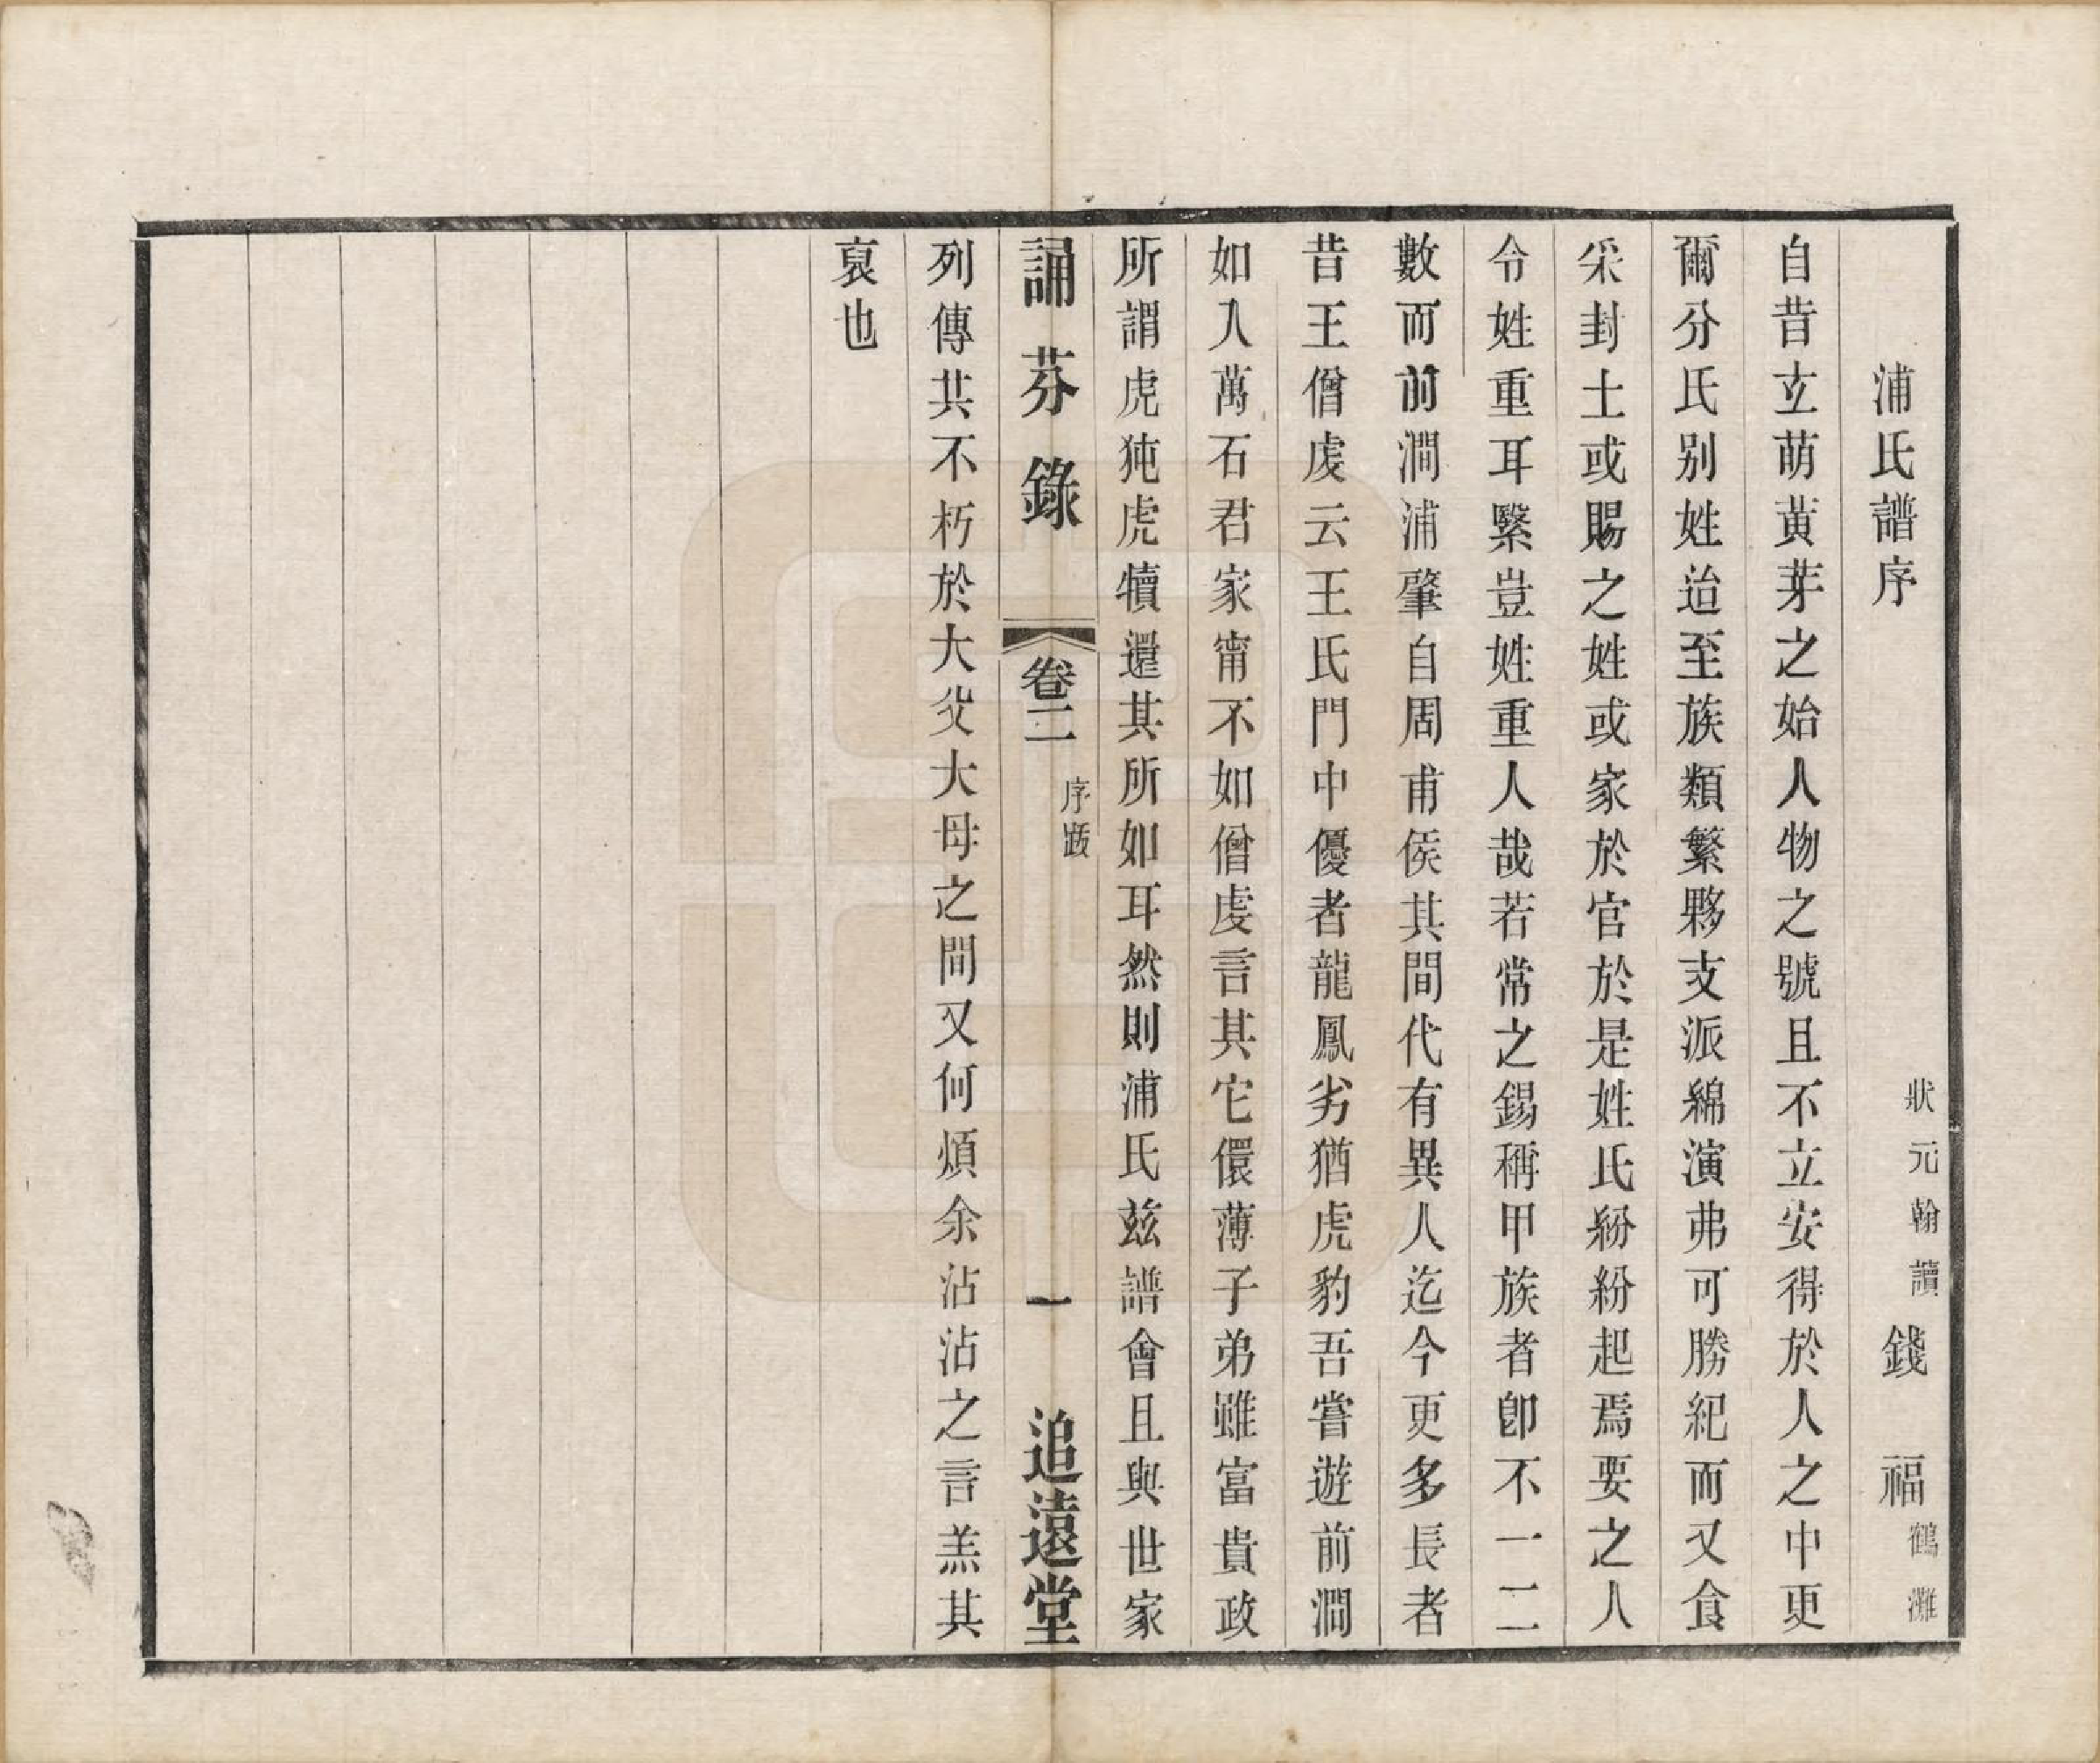 浦氏譜序
狀元翰讀錢　福鶴灘
自昔玄萌黃芽之始人物之號且不立安得於人之中更
爾分氏別姓迨至族類繁夥支派綿演弗可勝紀而又食
采封土或賜之姓或家於官於是姓氏紛紛起焉要之人
令姓重耳繄豈姓重人哉若常之錫稱甲族者卽不一二
數而前澗浦肇自周甫侯其間代有異人迄今更多長者
昔王僧虔云王氏門中優者龍鳳劣猶虎豹吾嘗遊前澗
如入萬石君家甯不如僧虔言其它儇薄子弟雖富貴政
所謂虎㹠虎犢還其所如耳然則浦氏茲譜會且與世家
誦芬錄　卷二　序跋　一　追遠堂
列傳共不朽於大父大母之間又何煩余沾沾之言羔其
裒也